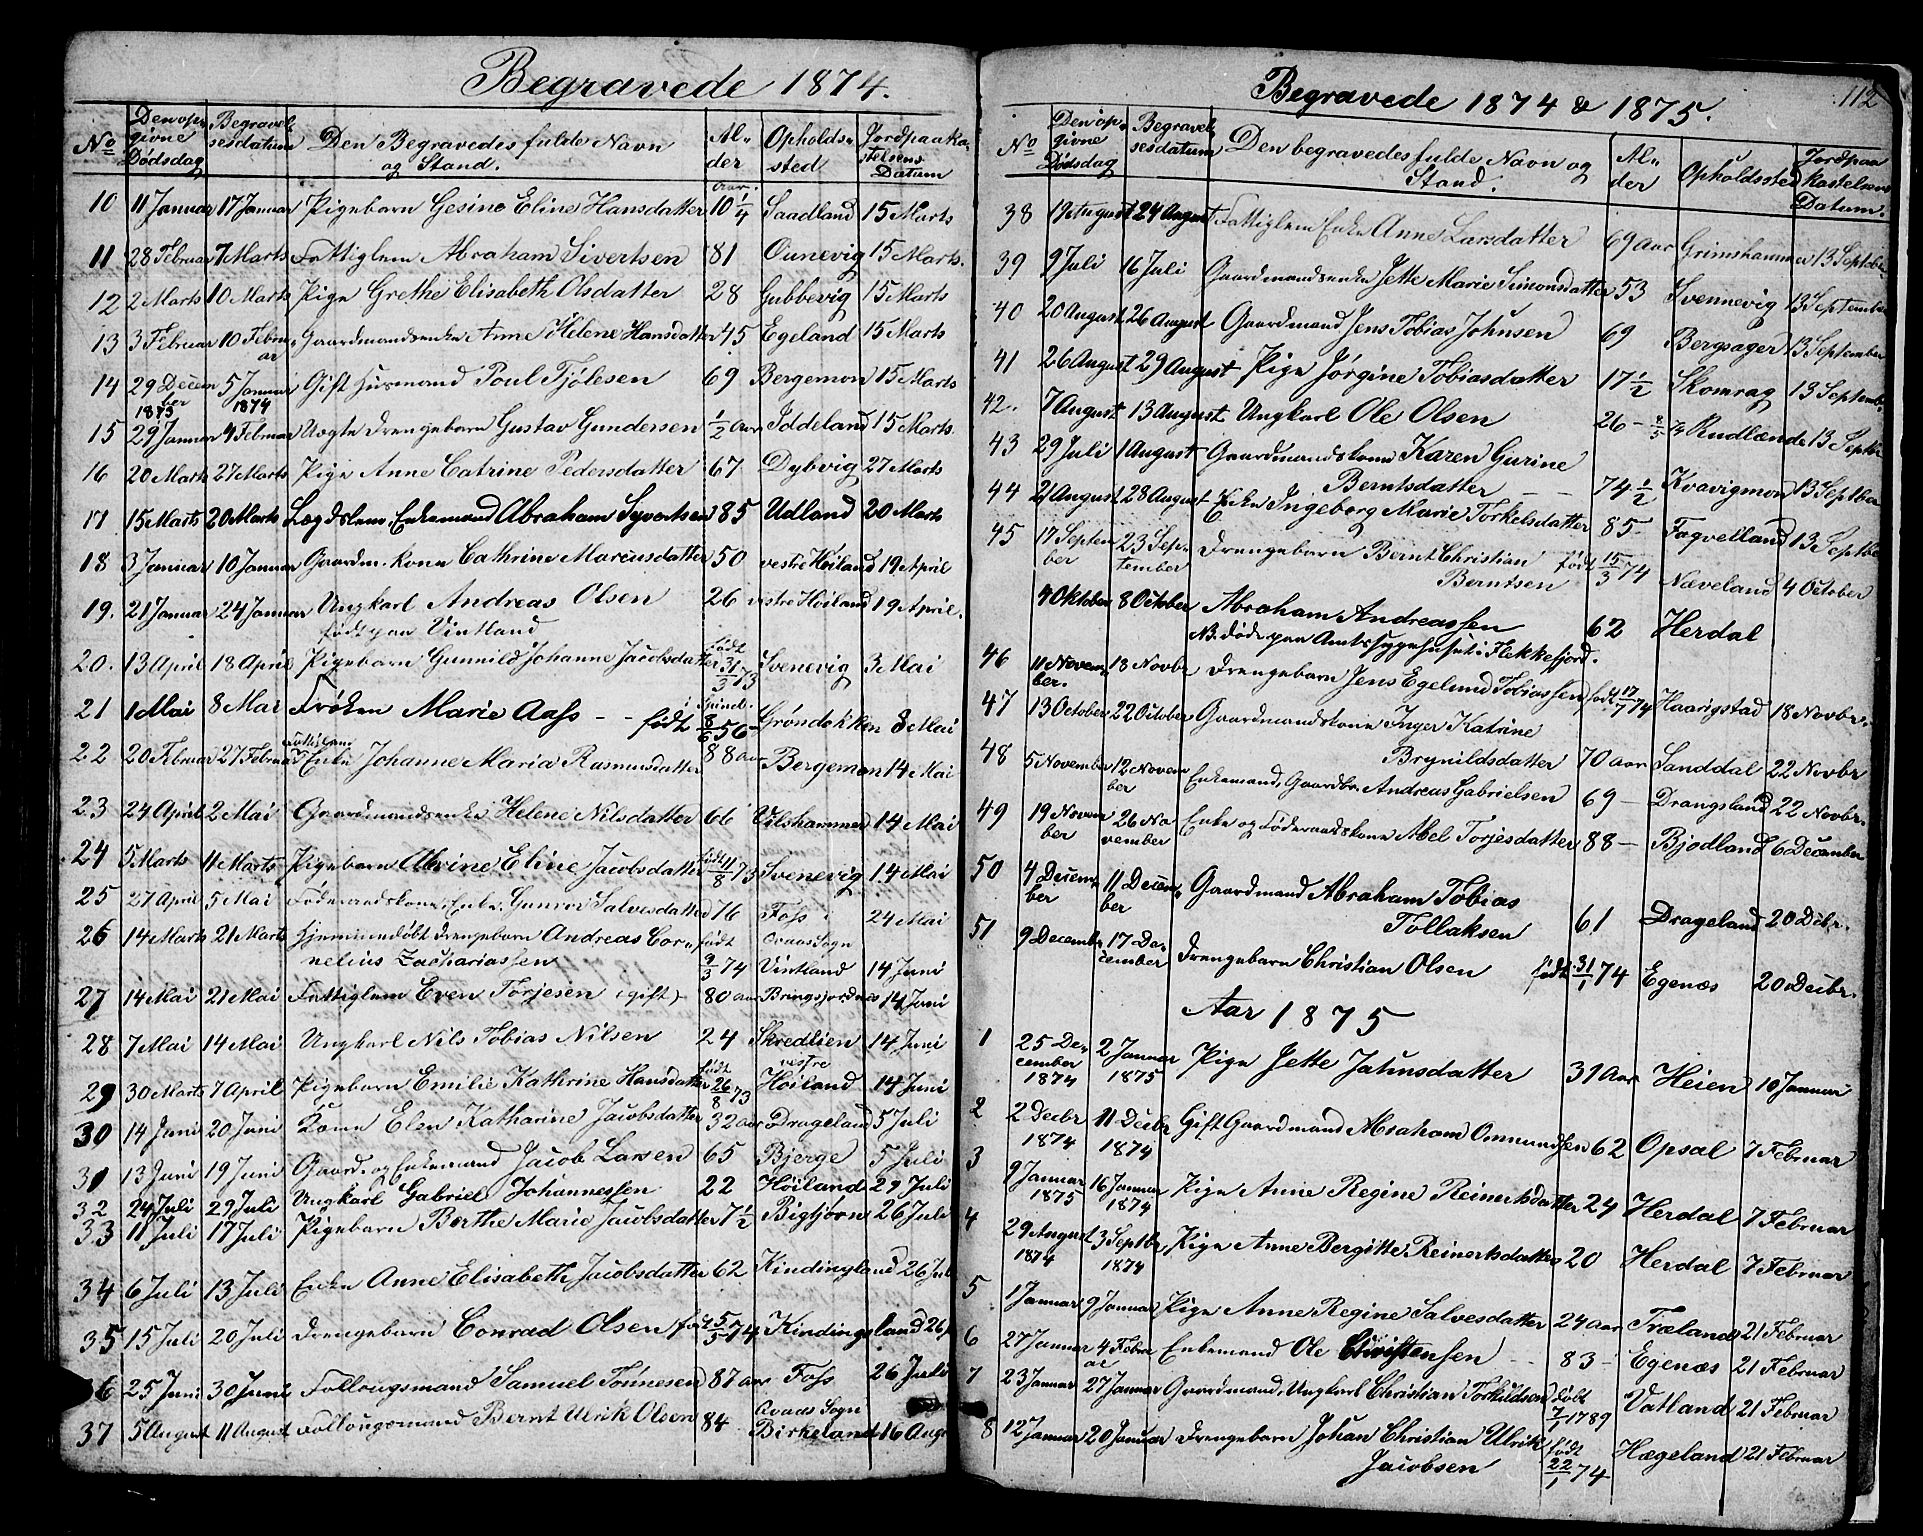 Begravede 1874.
No Den opgivne Dødsdag Begravelsesdatum Den Begravedes fulde Navn og Stand. Alder Opholdssted Jordpaakastelsens Datum
Aar.
10 11 Januar 17 Januar Pigebarn Gesine Eline Hansdatter 10 1/4 Saadland 15 Marts
11 28 Februar 7 Marts Fattiglem Abraham Sivertsen 81 Ounevig 15 Marts.
12 2 Marts 10 Marts Pige Grethe Elisabeth Olsdatter 28 Gubbevig 15 Marts
13 3 Februar 10 Februar Gaardmandsenke Anne Helene Hansdatter 45 Egeland 15 Marts
14 29 December 1873 5 Januar 1874 Gift Husmand Poul Tjølesen 69 Bergemon 15 Marts
15 29 Januar 4 Februar Uægte Drengebarn Gustav Gundersen 1/2 Aar Iddeland 15 Marts.
16 20 Marts 27 Marts Pige Anne Catrine Pedersdatter 67 Dybvig 27 Marts
17 15 Marts 20 Marts Lægdslem, Enkemand Abraham Syvertsen 85 Udland 20 Marts
18 3 Januar 10 Januar Gaardm. kone Cathrine Marcusdatter 50 vestre Høiland 19 April
19. 21 Januar 24 Januar Ungkarl Andreas Olsen 26 vestre Høiland 19 April.
født paa Vintland
20. 13 April 18 April Pigebarn Gunnild Johanne Jacobsdatter født 31/3 73 Svenevig 3 Mai
21 1 Mai 8 Mai Frøken Marie Aass - - født 8/6 56 Grøndokken 8 Mai
22 20 Februar 27 Februar Fattiglem Enke Johanne Maria Rasmusdatter 88 aar Bergemon 14 Mai
23 24 April 2 Mai Gaardmandsenke Helene Nilsdatter 66 Vilshammer 14 Mai
24 5 Marts 11 Marts Pigebarn Eline Jacobsdatter født 11/8 73 Svenevig 14 Mai
25 27 April 5 Mai Føderaadskone, Enke, Gunvor Salvesdatter 76 Foss 24 Mai
26 14 Marts 21 Marts Hjemmedøbt Drengebarn Andreas Cornelius Zachariassen født 9/3 74 Qvaas Sogn Vintland 14 Juni
27 14 Mai 21 Mai Fattiglem Even Torjesen (gift) 80 aar Bringsjordnes 14 Juni
28 7 Mai 14 Mai Ungkarl Nils Tobias Nilsen 24 Skredlien 14 Juni
29 30 Marts 7 April Pigebarn Emilie Kathrine Hansdatter født 26/8 73 vestre Høiland 14 Juni
30 14 Juni 20 Juni Kone Elen Katharine Jacobsdatter 32 aar Drageland 5 Juli
31 13 Juni 19 Juni Gaard- og Enkemand Jacob Larsen 65 Bjerge 5 Juli
32 24 Juli 29 Juli Ungkarl Gabriel Johannessen 22 Høiland 29 Juli
33 11 Juli 17 Juli Pigebarn Berthe Marie Jacobsdatter 7 1/2 Bigtjorn 26 Juli
34 6 Juli 13 Juli Enke Anne Elisabeth Jacobsdatter 62 Kindingland 26 Juli
35 15 Juli 20 Juli Drengebarn Conrad Olsen født 5/5 74 Kindingsland 26
36 25 Juni 30 Juni Follougsmand Samuel Tønnesen 87 aar Foss 26 Juli
37 5 August 11 August Follougsmand Bernt Ulrik Olsen 84 Qvaas Sogn Birkeland 16 Augu
112
Begravede 1874 & 1875.
No Den opgivne Dødsdag Begravelsesdatum Den begravedes fulde Navn og Stand. Alder Opholdssted Jordpaakastelsens Datum.
38 17 August 24 August Fattiglem Enke Anne Larsdatter 69 aar Grimshammer 13 Septebr
39 9 Juli 16 Juli Gaardmandsenke Jette Marie Simonsdatter 53 Svennevig 13 September
40 20 August 26 August Gaardmand Jens Tobias Johnsen 69 Bergsager 13 September
41 26 August 29 August Pige Jørgine Tobiasdatter 17 1/2 Skomrag 13 Septemb.
42. 7 August 13 August Ungkarl Ole Olsen 26 - Rudlænde 13 Septbr
43 29 Juli 1 August Gaardmandskone Karen Gurine
Berntsdatter - - 74 1/2 Kvavigmon 13 Septber
44 21 August 28 August Enke Ingeborg Marie Torkelsdatter 85 - Fagvelland 13 Septbe
45 17 September 23 September Drengebarn Bernt Christian
Berntsen født 15/3 74 Næveland 4 October
4 Oktober 8 October Abraham Andreassen 62 Herdal
NB. døde paa Amtssygehuset i Flekkefjord.
46 11 November. 18 Novbr Drengebarn Jens Egelund Tobiassen født 17/7 74 Haarigstad 18 Novbr.
47 13 October 22 October Gaardmandskone Inger Katrine
Brynildsdatter 70 aar Sanddal 22 Novbr
48 5 November 12 November Enkemand, Gaardbr. Andreas Gabrielsen 69 - Drangsland 22 Novbr.
49 19 November 26 November Enke og Føderaadskone Abel Torjesdatter 88 - Bjodland 6 December
50 4 December 11 December Gaardmand Abraham Tobias
Tollaksen 61 Drageland 20 Decbr.
51 9 Decembr 17 December Drengebarn Christian Olsen født 31/1 74 Egenæs 20 Decbr.
Aar 1875
1 25 December 1874 2 Januar 1875 Pige Jette Jahnsdatter 31 Aar Heien 10 Januar
2 2 Decbr 1874 11 Decbr 1874 Gift Gaardmand Abraham Ommundsen 62 Opsal 7 Februar
3 9 Januar 1875 16 Januar 1874 Pige Anne Regine Reinertsdatter 24 Herdal 7 Februar
4 29 August 1874 3 Septbr 1874 Pige Anne Bergitte Reinertsdatter 20 Herdal 7 Februar
5 1 Januar 9 Januar Pige Anne Regine Salvesdatter 24 aar Træland 21 Februar
6 27 Januar 4 Februar Enkemand Ole Christensen - - 83 - Egenæs 21 Februar
7 23 Januar 27 Januar Gaardmand, Ungkarl Christian Torkildsen født 7/7 1789 Vatland 21 Februar
8 12 Januar 20 Januar Drengebarn Johan Christian Ulrik
Jacobsen født 22/1 74 Hægeland 21 Februar